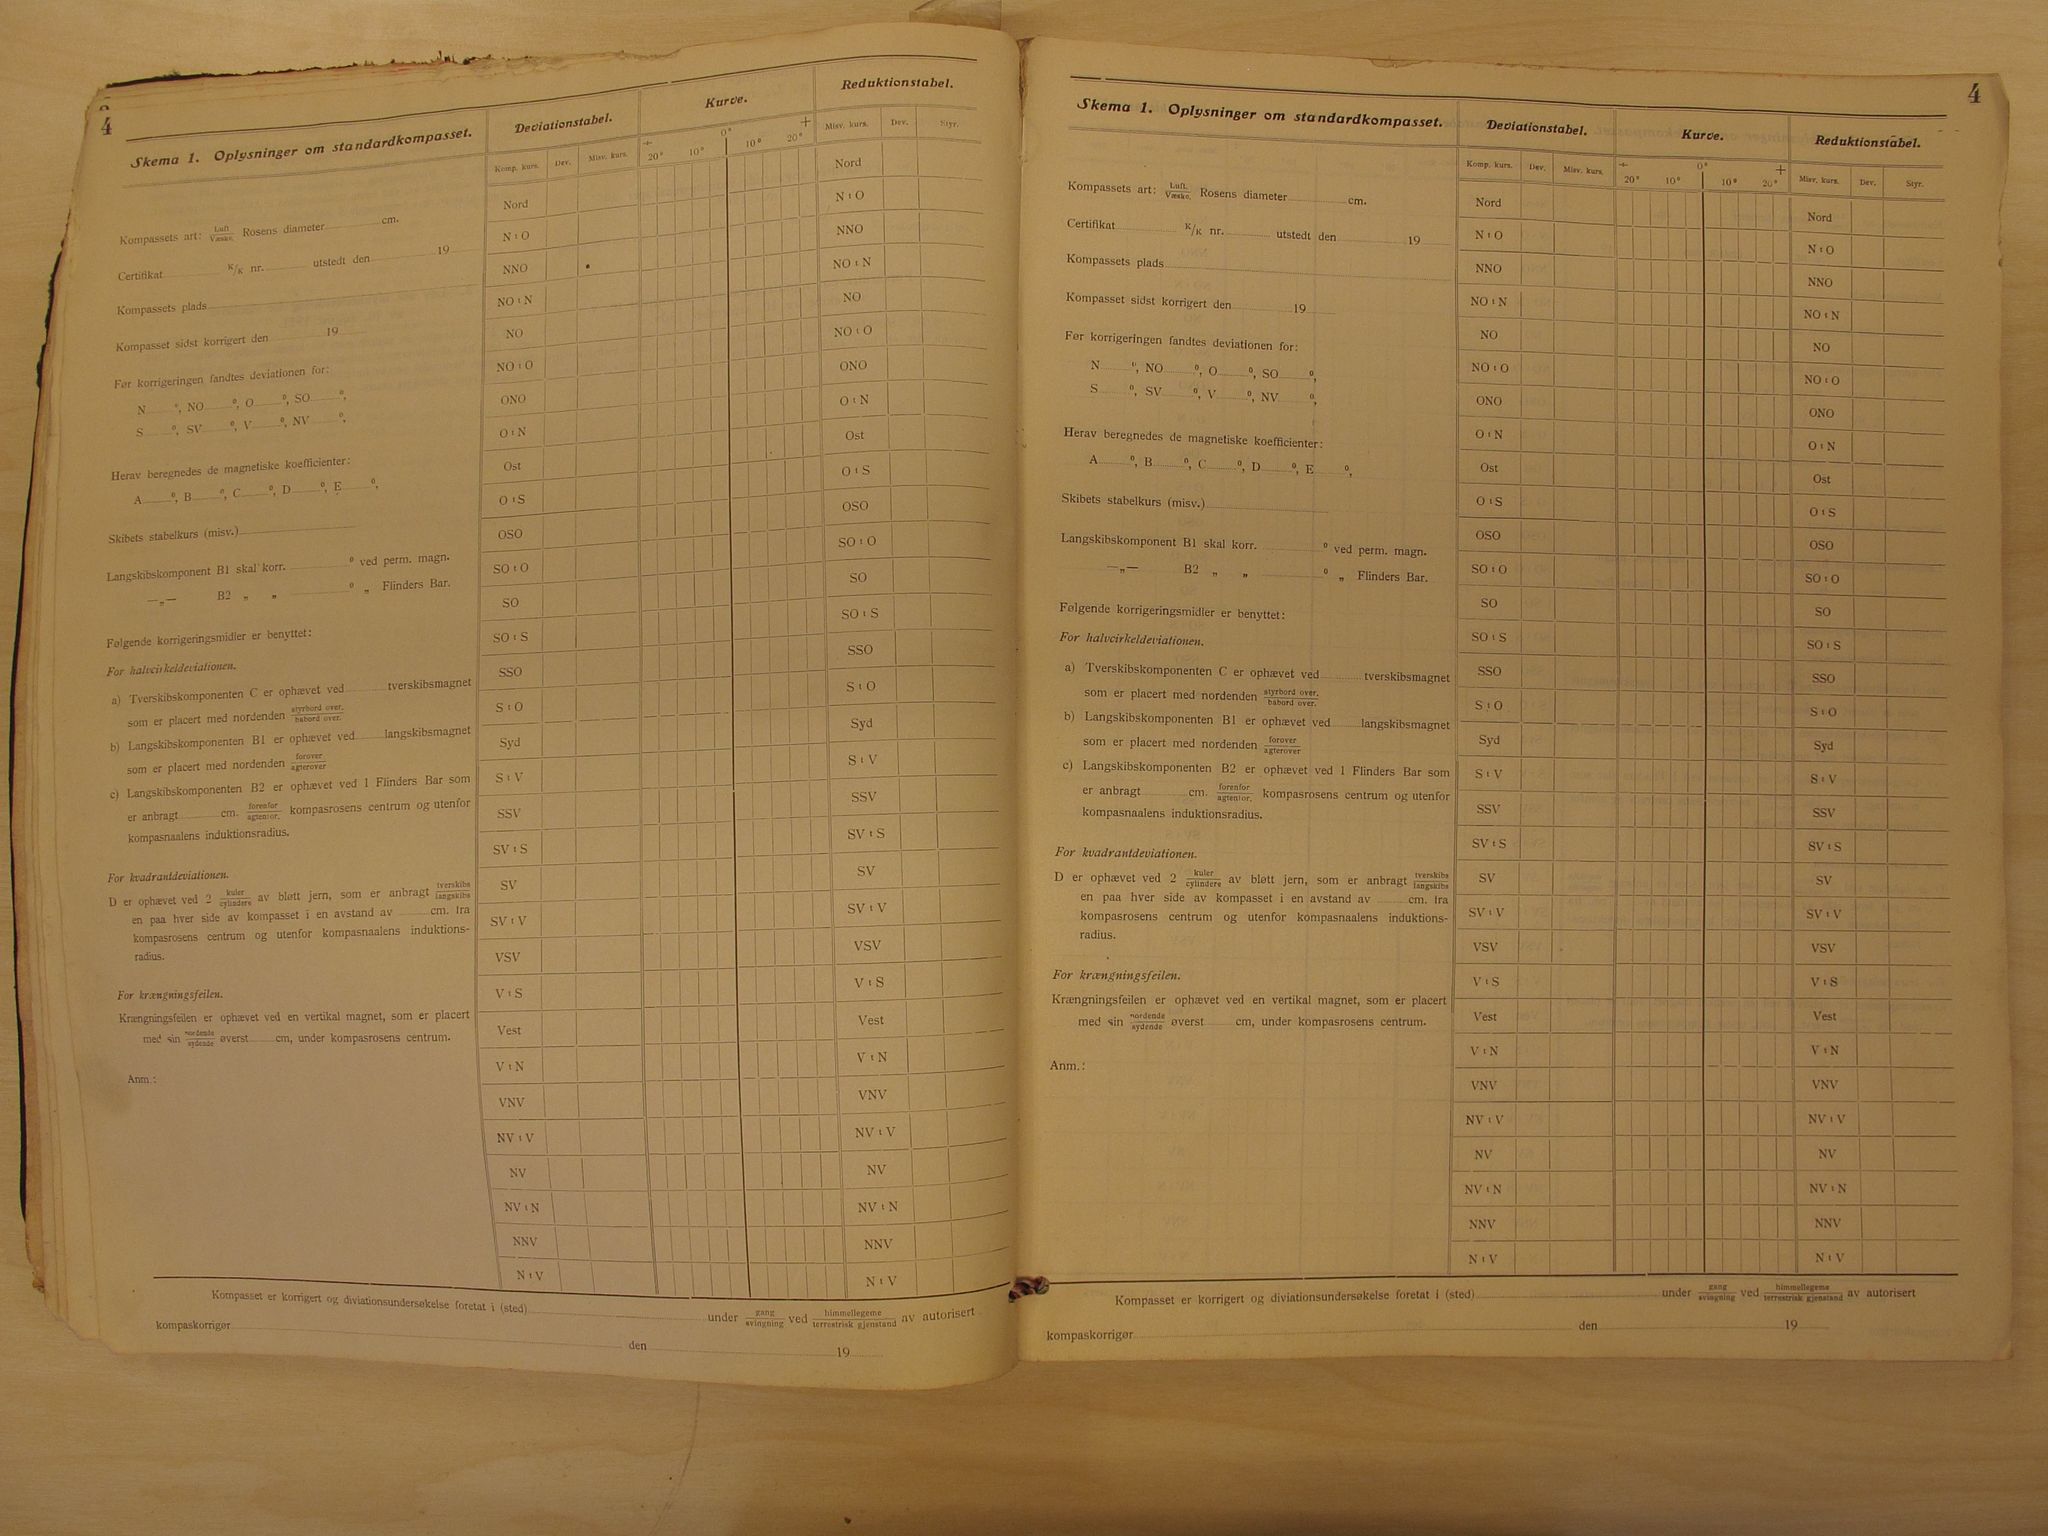 4
Skema 1. Oplysninger om standardkompasset.
Kompassets art: Luft Væske. Rosens diameter cm.
Certifikat K/K nr. utstedt den 19
Kompassets plads
Kompasset sidst korrigert den 19
Før korrigeringen fandtes deviationen for:
N °, NO °, O °, SO °,
S °, SV °, V °, NV °,
Herav beregnedes de magnetiske koefficienter:
A °, B °, C °, D °, E °,
Skibets stabelkurs (misv.)
Langskibskomponent B1 skal korr. ° ved perm. magn.
—„— B2 „ „ ° „ Flinders Bar.
Følgende korrigeringsmidler er benyttet:
For halvcirkeldeviationen.
a) Tverskibskomponenten C er ophævet ved tverskibsmagnet
som er placert med nordenden styrbord over. babord over.
b) Langskibskomponenten B1 er ophævet ved langskibsmagnet
som er placert med nordenden forover agterover
c) Langskibskomponenten B2 er ophævet ved 1 Flinders Bar som
er anbragt cm. forenfor agtenfor. kompasrosens centrum og utenfor
kompasnaalens induktionsradius.
For kvadrantdeviationen.
D er ophævet ved 2 kuler cylindere av bløtt jern, som er anbragt tverskibs langskibs
en paa hver side av kompasset i en avstand av cm. fra
kompasrosens centrum og utenfor kompasnaalens induktions-
radius.
For krængningsfeilen.
Krængningsfeilen er ophævet ved en vertikal magnet, som er placert
med sin nordende sydende øverst cm, under kompasrosens centrum.
Anm.:
Deviationstabel.
Komp. kurs. Dev. Misv. kurs.
Nord
N t O
NNO
NO t N
NO
NO t O
ONO
O t N
Ost
O t S
OSO
SO t O
SO
SO t S
SSO
S t O
Syd
S t V
SSV
SV t S
SV
SV t V
VSV
V t S
Vest
V t N
VNV
NV t V
NV
NV t N
NNV
N t V
Kurve.
÷ 0° +
20° 10° 10° 20°
Reduktionstabel.
Misv. kurs. Dev. Styr.
Nord
N t O
NNO
NO t N
NO
NO t O
ONO
O t N
Ost
O t S
OSO
SO t O
SO
SO t S
SSO
S t O
Syd
S t V
SSV
SV t S
SV
SV t V
VSV
V t S
Vest
V t N
VNV
NV t V
NV
NV t N
NNV
N t V
Kompasset er korrigert og diviationsundersøkelse foretat i (sted) under gang svingning ved himmellegeme terrestrisk gjenstand av autorisert
kompaskorrigør den 19
4
Skema 1. Oplysninger om standardkompasset.
Kompassets art: Luft. Væske. Rosens diameter cm.
Certifikat K/K nr. utstedt den 19
Kompassets plads
Kompasset sidst korrigert den 19
Før korrigeringen fandtes deviationen for:
N °, NO °, O °, SO °,
S °, SV °, V °, NV °,
Herav beregnedes de magnetiske koefficienter:
A °, B °, C °, D °, E °,
Skibets stabelkurs (misv.)
Langskibskomponent B1 skal korr. ° ved perm. magn.
—„— B2 „ „ ° „ Flinders Bar.
Følgende korrigeringsmidler er benyttet:
For halvcirkeldeviationen.
a) Tverskibskomponenten C er ophævet ved tverskibsmagnet
som er placert med nordenden styrbord over. babord over.
b) Langskibskomponenten B1 er ophævet ved langskibsmagnet
som er placert med nordenden forover agterover
c) Langskibskomponenten B2 er ophævet ved 1 Flinders Bar som
er anbragt cm. forenfor agtenfor. kompasrosens centrum og utenfor
kompasnaalens induktionsradius.
For kvadrantdeviationen.
D er ophævet ved 2 kuler cylindere av bløtt jern, som er anbragt tverskibs langskibs
en paa hver side av kompasset i en avstand av cm. fra
kompasrosens centrum og utenfor kompasnaalens induktions-
radius.
For krængningsfeilen.
Krængningsfeilen er ophævet ved en vertikal magnet, som er placert
med sin nordende sydende øverst cm, under kompasrosens centrum.
Anm.:
Deviationstabel.
Komp. kurs. Dev. Misv. kurs.
Nord
N t O
NNO
NO t N
NO
NO t O
ONO
O t N
Ost
O t S
OSO
SO t O
SO
SO t S
SSO
S t O
Syd
S t V
SSV
SV t S
SV
SV t V
VSV
V t S
Vest
V t N
VNV
NV t V
NV
NV t N
NNV
N t V
Kurve.
÷ 0° +
20° 10° 10° 20°
Reduktionstabel.
Misv. kurs. Dev. Styr.
Nord
N t O
NNO
NO t N
NO
NO t O
ONO
O t N
Ost
O t S
OSO
SO t O
SO
SO t S
SSO
S t O
Syd
S t V
SSV
SV t S
SV
SV t V
VSV
V t S
Vest
V t N
VNV
NV t V
NV
NV t N
NNV
N t V
Kompasset er korrigert og diviationsundersøkelse foretat i (sted) under gang svingning ved himmellegeme terrestrisk gjenstand av autorisert
kompaskorrigør den 19